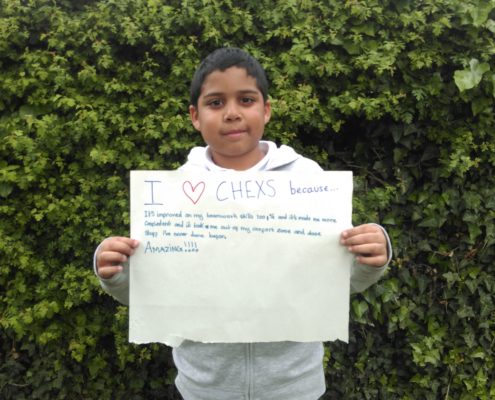 I ♡ CHEXS because...
It's improved on my teamwork skills too, and it's made me more
confident and it took me out of my comfort zone and done
things I've never done before.
AMAZING!!!!